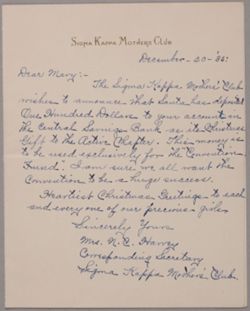 Sigma Kappa Mothers Club
December-20-'35:
Dear Mary:-
The Sigma Kappa Mothers' Club
wishes to announce that Santa has deposited
One Hundred Dollars to your account in
the Central Savings Bank as its Christmas
Gift to the Active Chapter. This money is
to be used exclusively for the Convention
Fund. I am sure we all want the
Convention to be a huge success.
Heartiest Christmas Greetings to each
and every one of our precious girls
Sincerely Yours
Mrs. N. E. Harvey
Corresponding Secretary
Sigma Kappa Mothers' Club.